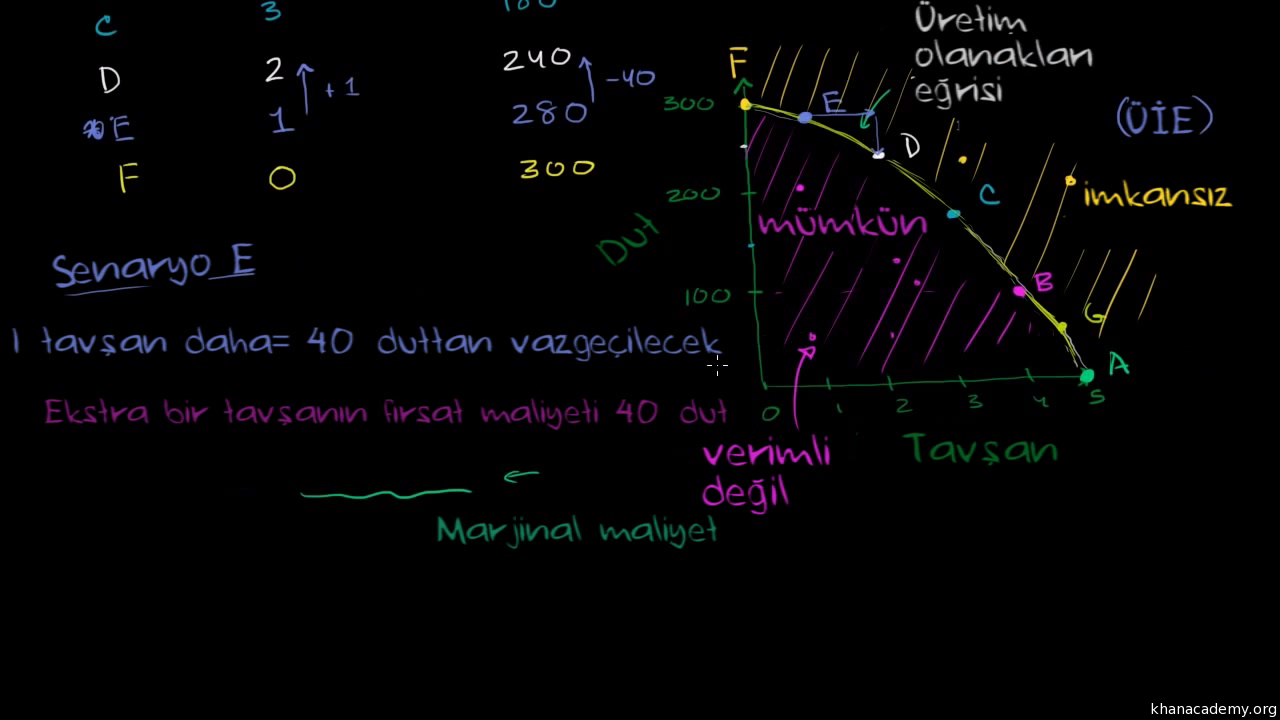 C 3 180
D 2 240
+1 -40
E 1 280
F 0 300
Senaryo E
1 tavşan daha= 40 duttan vazgeçilecek
Ekstra bir tavşanın fırsat maliyeti 40 dut
Marjinal maliyet
Üretim
olanakları
eğrisi
(ÜİE)
F
300
E
D
C
200
imkansız
mümkün
Dut
100
B
G
A
0 1 2 3 4 5
Tavşan
verimli
değil
khanacademy.org